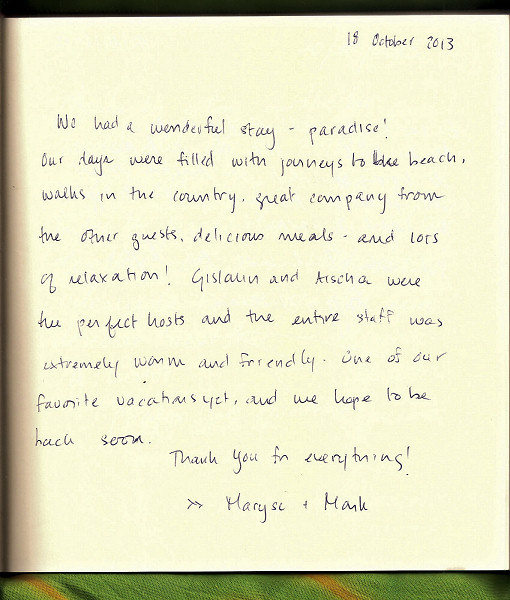 18 October 2013
We had a wonderful stay - paradise!
Our days were filled with journeys to the beach,
walks in the country, great company from
the other guests, delicious meals - and lots
of relaxation! Gislain and Aischa were
the perfect hosts and the entire staff was
extremely warm and friendly. One of our
favorite vacations yet, and we hope to be
back soon.
Thank you for everything!
>> Maryse + Mark